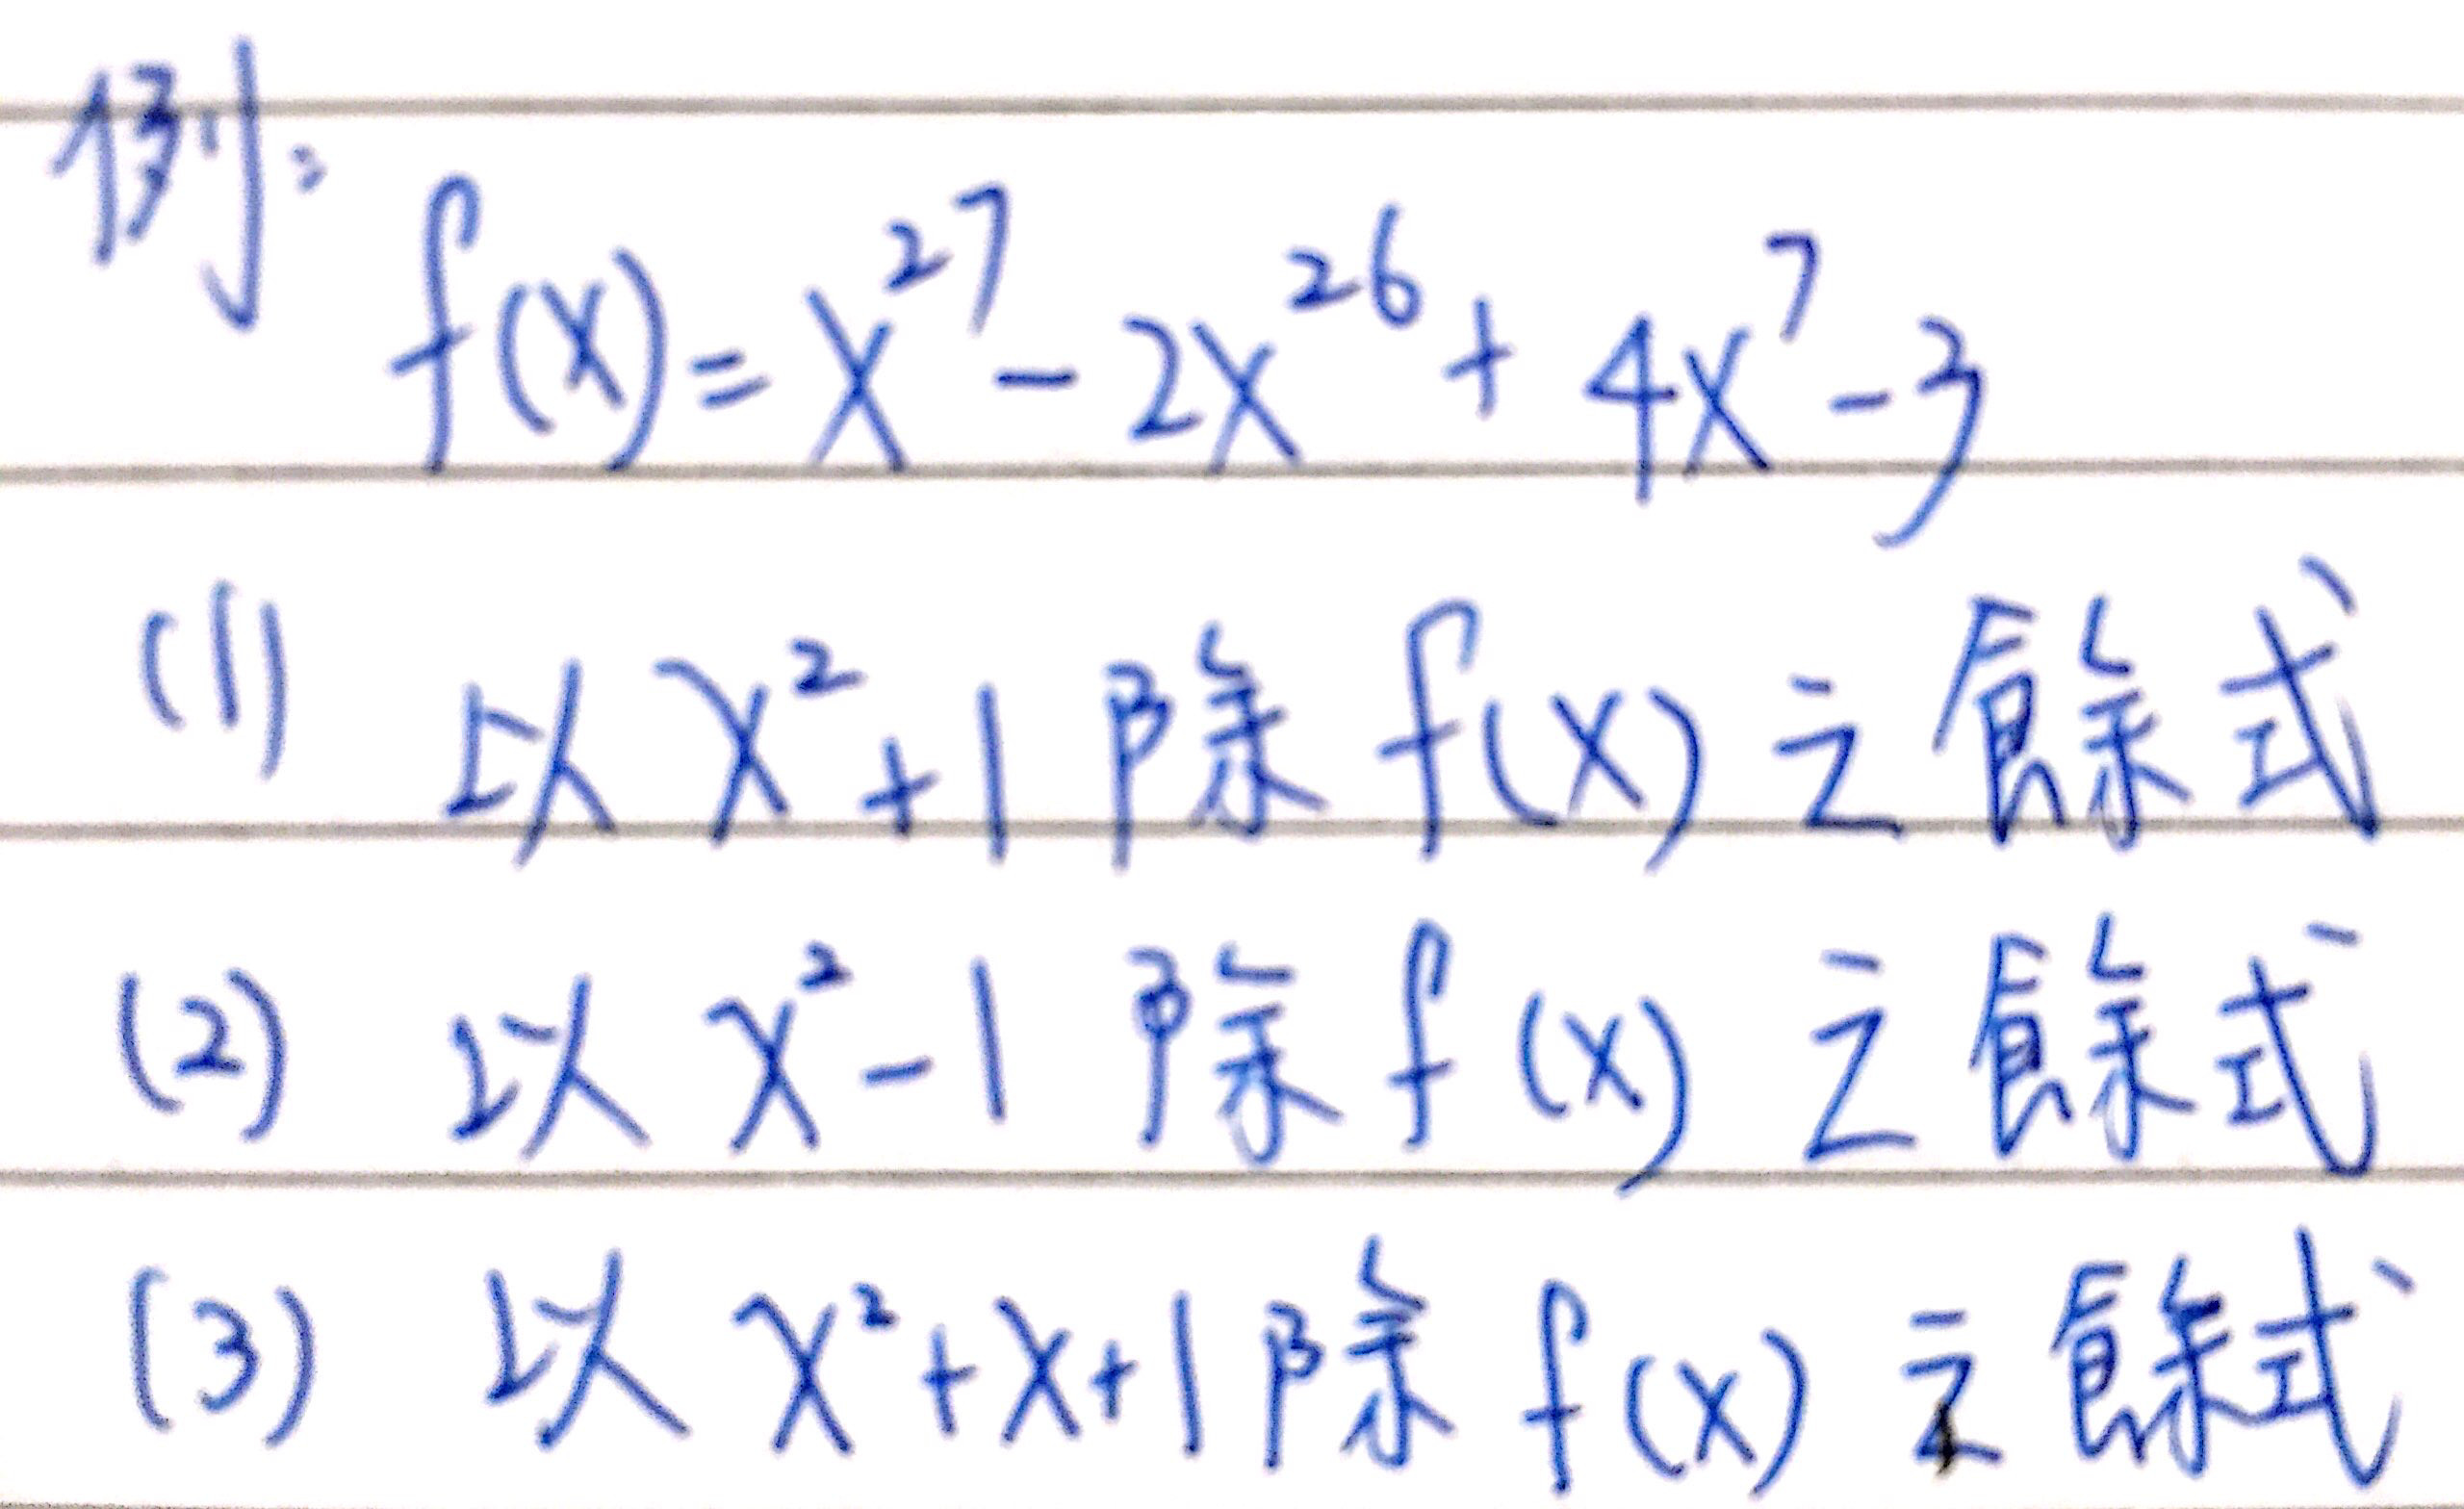 例:
f(x) = x²⁷ - 2x²⁶ + 4x⁷ - 3
(1) 以 x² + 1 除 f(x) 之餘式
(2) 以 x² - 1 除 f(x) 之餘式
(3) 以 x² + x + 1 除 f(x) 之餘式